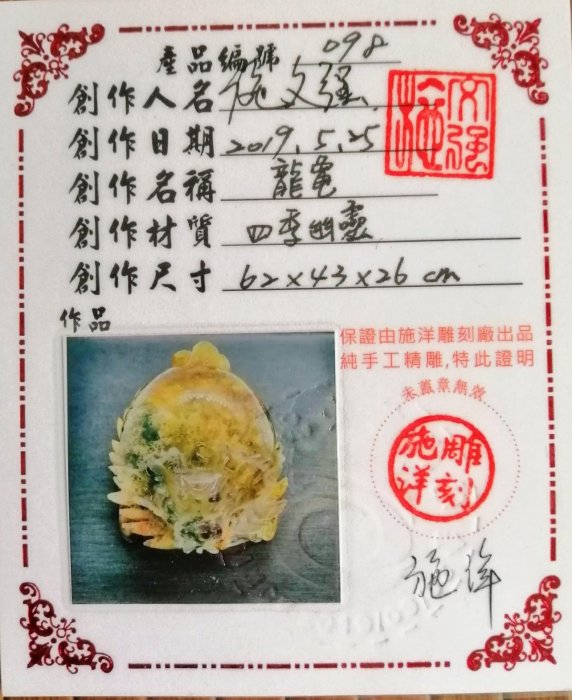 產品編號 098
創作人名 施文強
創作日期 2019.5.25
創作名稱 龍龜
創作材質 四季幽靈
創作尺寸 62x43x26 cm
作品
施文強
保證由施洋雕刻廠出品
純手工精雕,特此證明
未蓋章無效
施洋雕刻
施洋